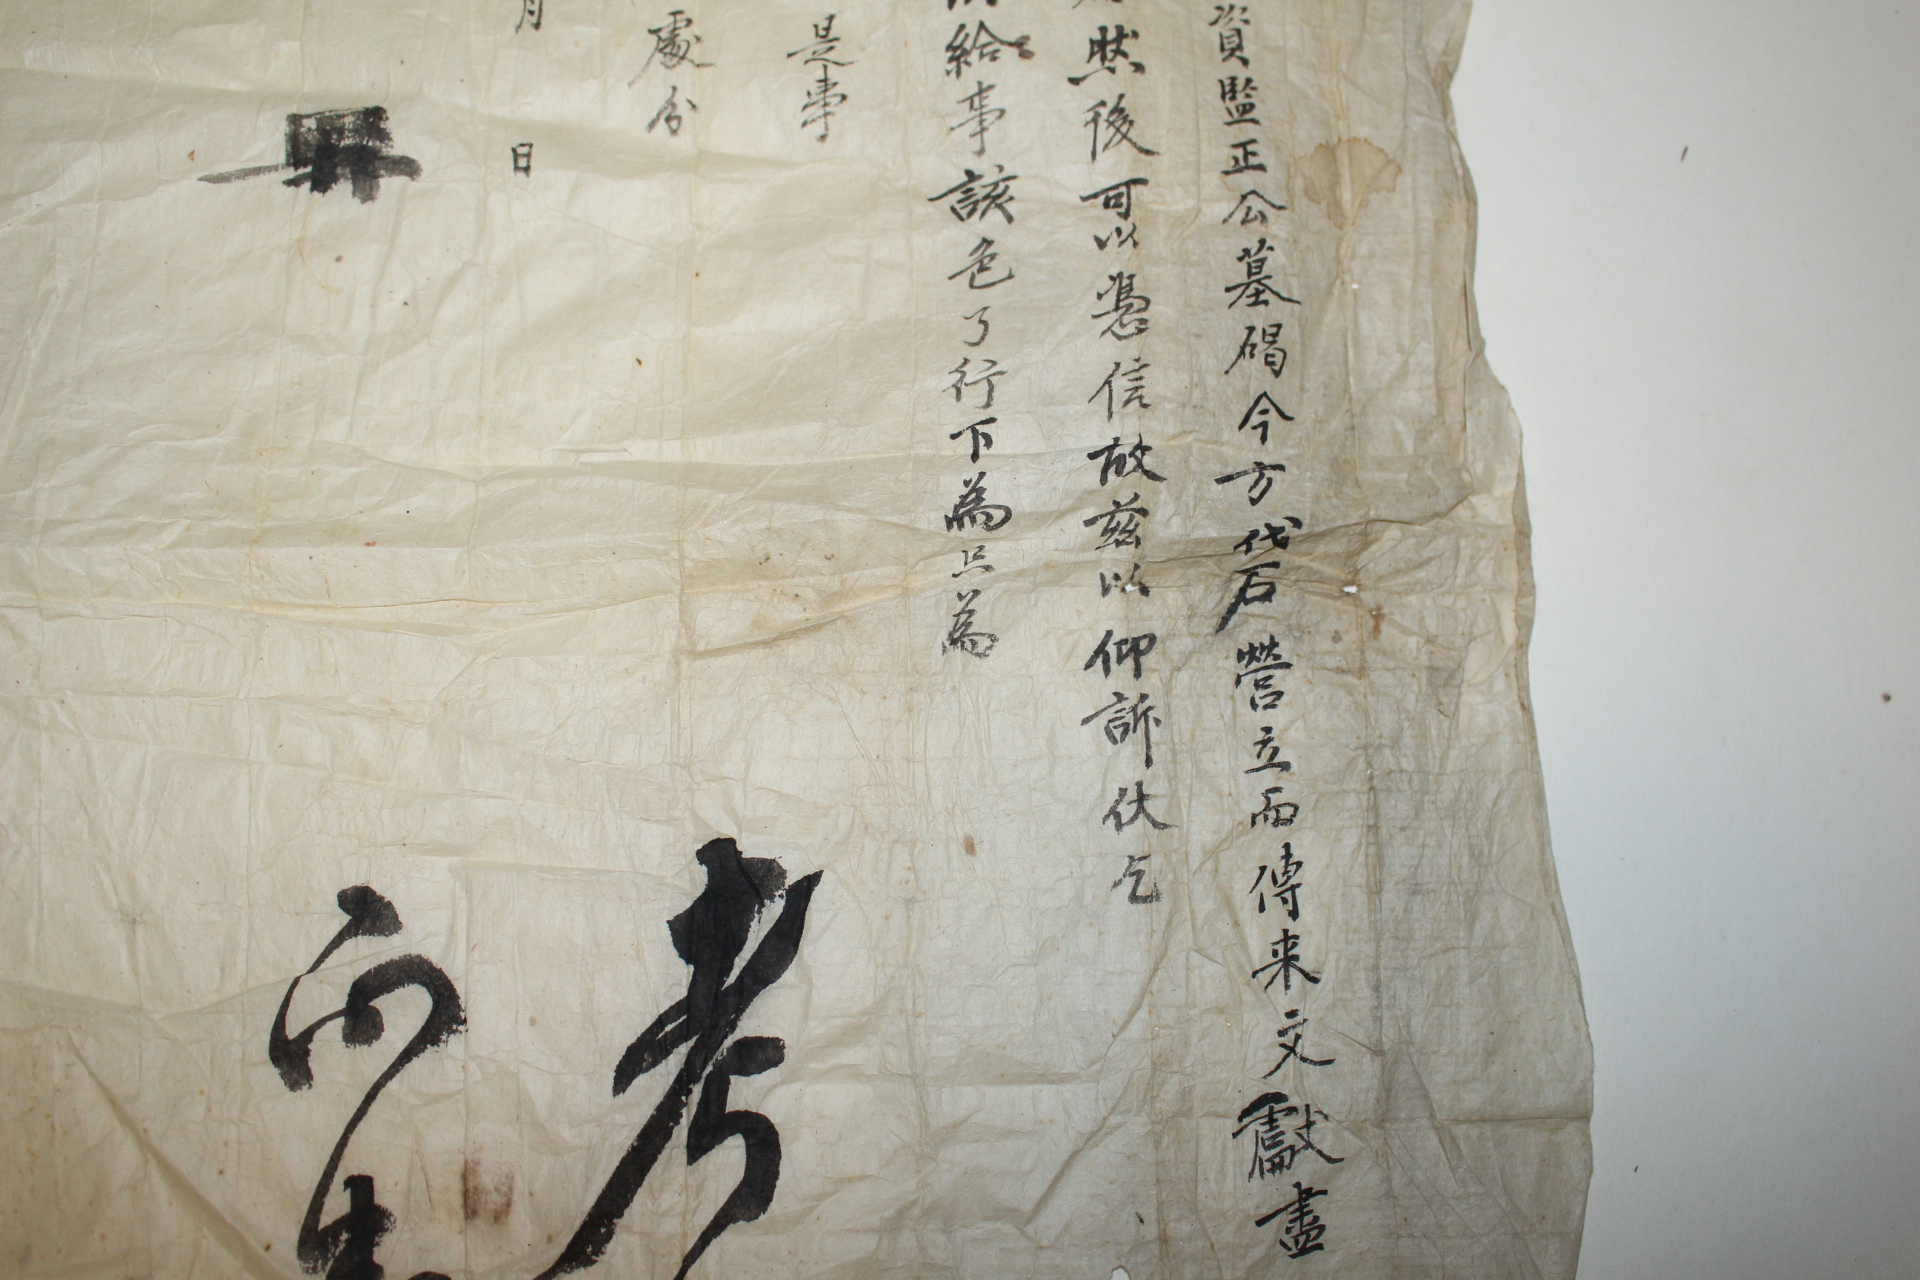 資監正公墓碣今方伐石營立而傳来文獻盡
然後可以憑信故茲以仰訴伏乞
給事該色了行下為只為
是事
處分
月 日
考